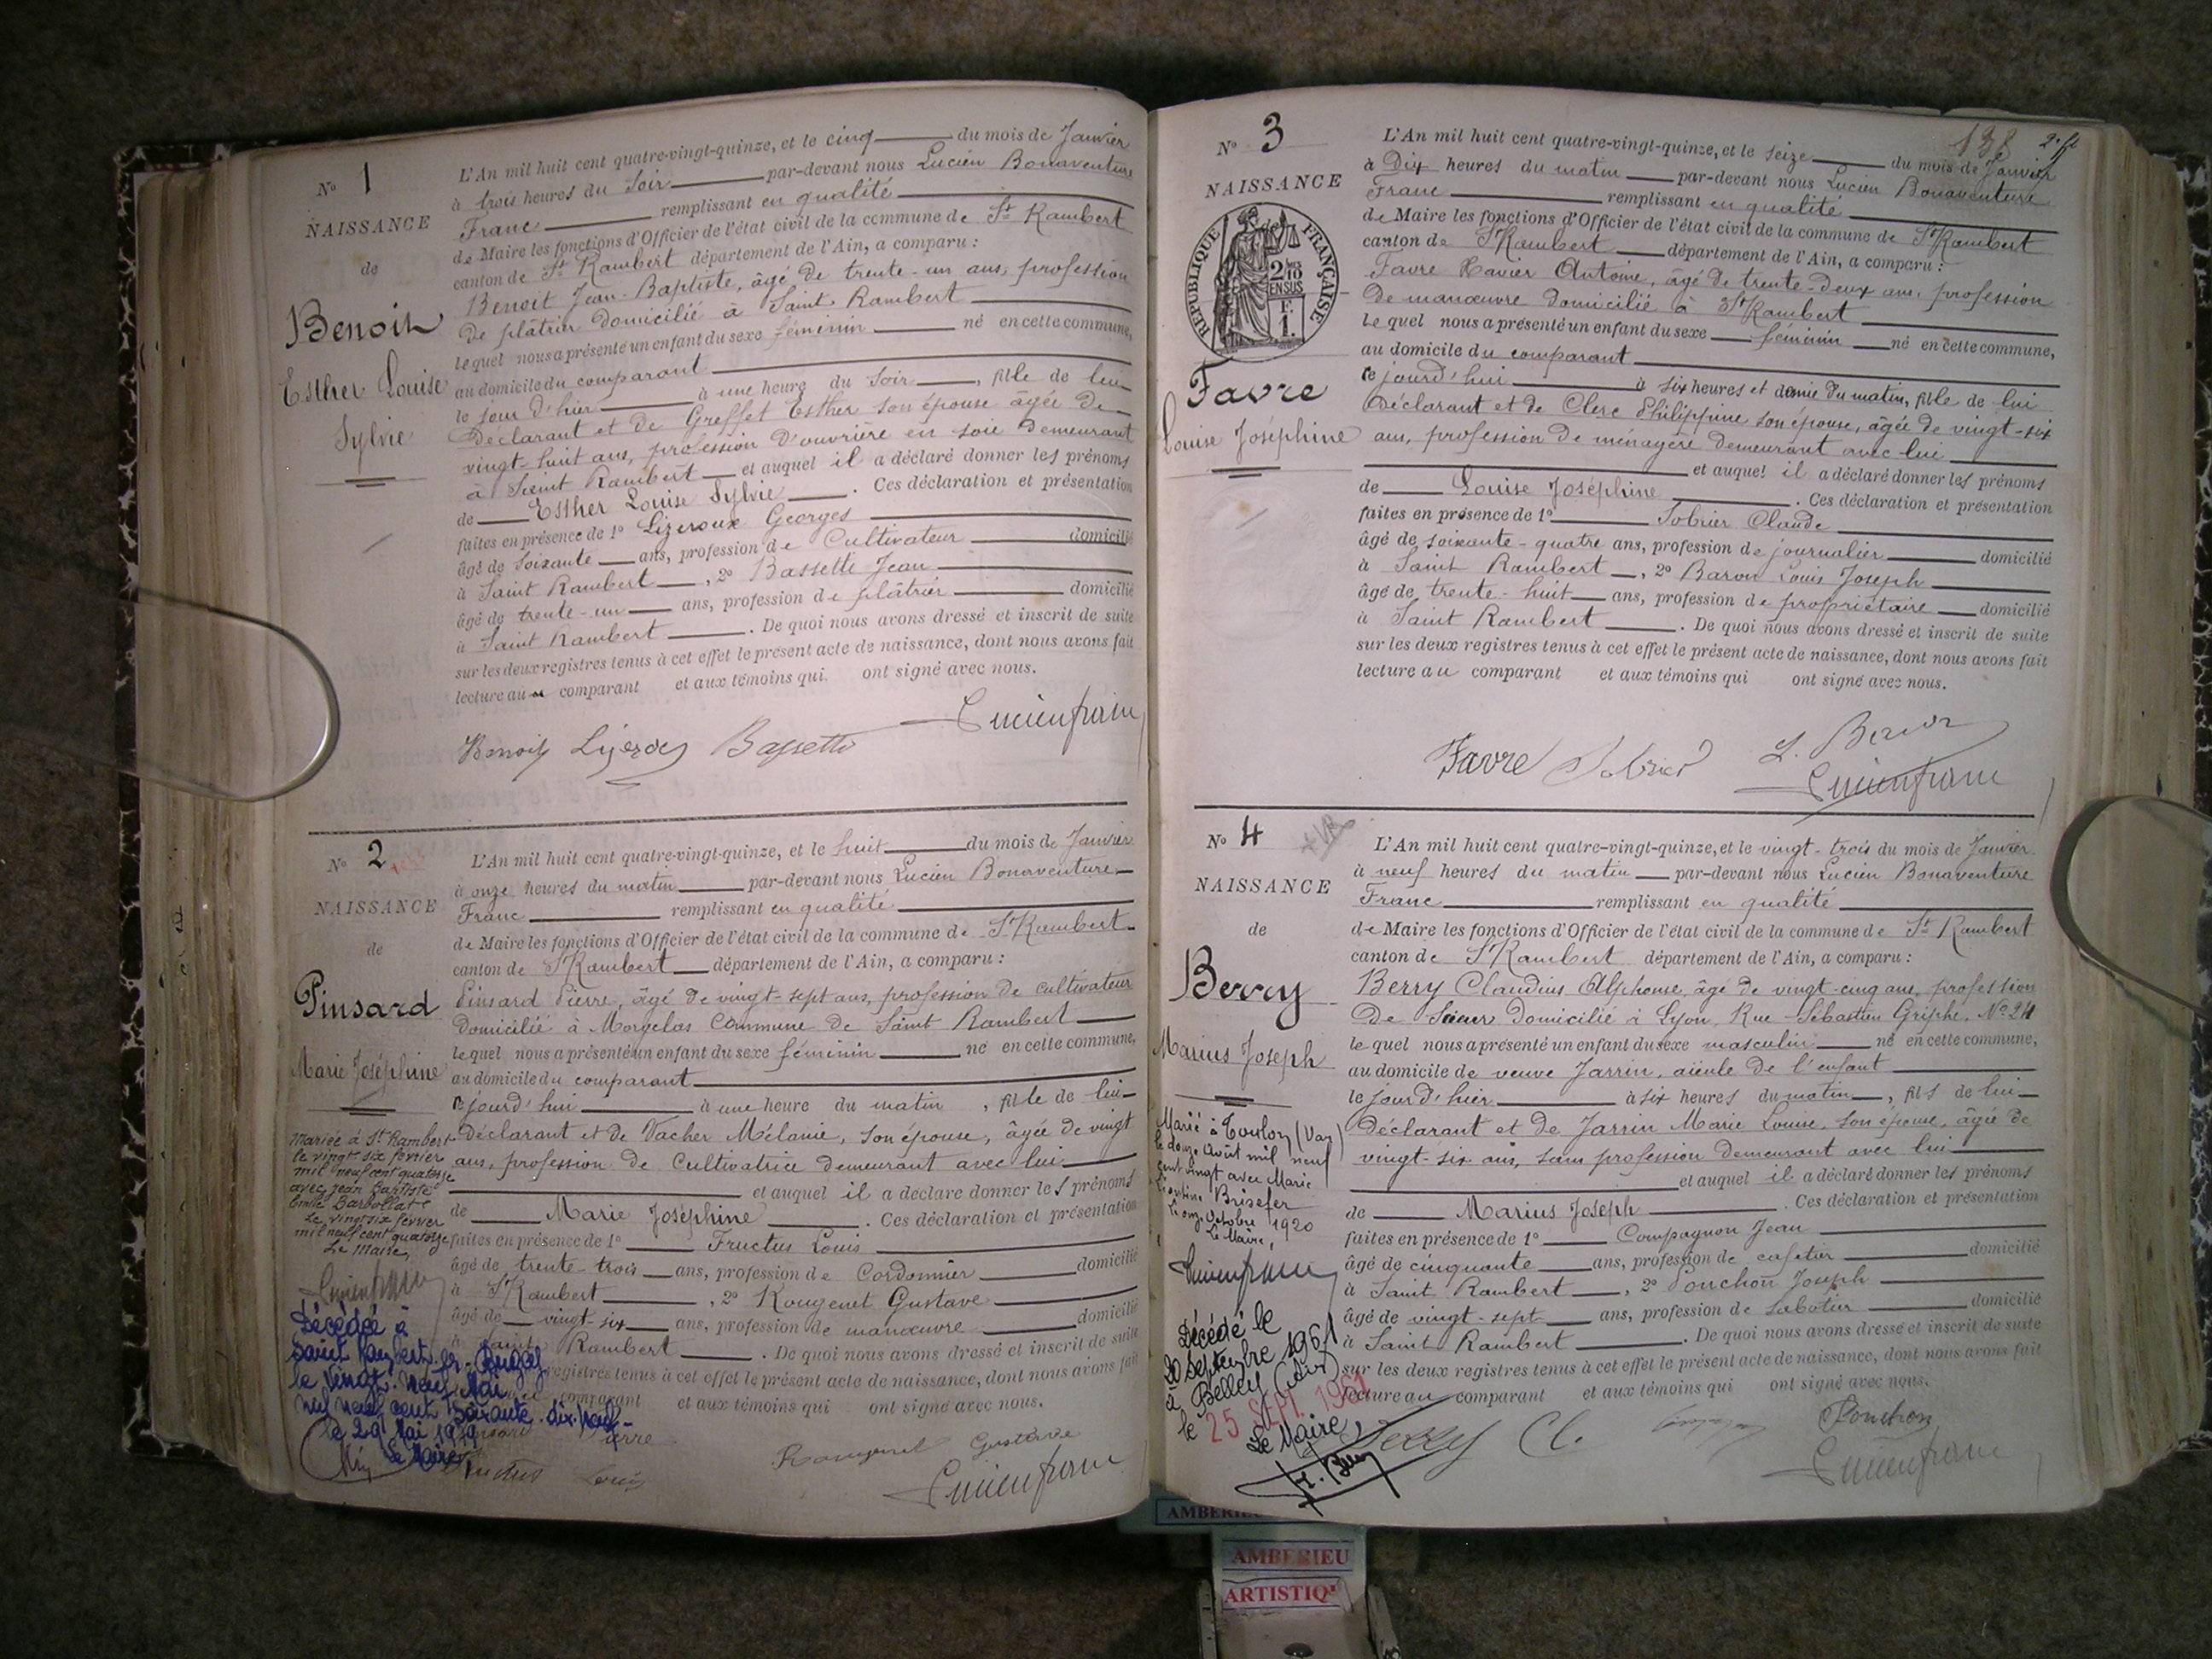 N° 1
NAISSANCE
de
Benoit
Esther Louise
Sylvie
L'An mil huit cent quatre-vingt-quinze, et le cinq du mois de Janvier
à trois heures du soir par-devant nous Lucien Bonaventure
Franc remplissant en qualité
de Maire les fonctions d'Officier de l'état civil de la commune de St Rambert
canton de St Rambert département de l'Ain, a comparu :
Benoit Jean-Baptiste, âgé de trente-un ans, profession
de plâtrier domicilié à Saint Rambert
lequel nous a présenté un enfant du sexe féminin né en cette commune,
au domicile du comparant
le jour d'hier à une heure du soir, fille de lui
déclarant et de Greffet Esther son épouse âgée de
vingt-huit ans, profession d'ouvrière en soie demeurant
à Saint Rambert et auquel il a déclaré donner les prénoms
de Esther Louise Sylvie. Ces déclaration et présentation
faites en présence de 1° Lizeroux Georges
âgé de soixante ans, profession de Cultivateur domicilié
à Saint Rambert, 2° Bassetti Jean
âgé de trente-un ans, profession de plâtrier domicilié
à Saint Rambert. De quoi nous avons dressé et inscrit de suite
sur les deux registres tenus à cet effet le présent acte de naissance, dont nous avons fait
lecture au comparant et aux témoins qui ont signé avec nous.
Lucien franc
Benoit Bassetti
N° 2
NAISSANCE
de
Pinsard
Marie Joséphine
Mariée à St Rambert
le vingt six février
mil neuf cent quatorze
avec Jean Baptiste
Emile Barbollat
Le vingt six février
mil neuf cent quatorze
Le Maire,
Lucien franc
Décédée à
Saint Rambert-en-Bugey
le vingt-neuf Mai
mil neuf cent soixante-dix-neuf-
le 29 Mai 1979
Le Maire,
L'An mil huit cent quatre-vingt-quinze, et le huit du mois de Janvier
à onze heures du matin par-devant nous Lucien Bonaventure
Franc remplissant en qualité
de Maire les fonctions d'Officier de l'état civil de la commune de St Rambert
canton de St Rambert département de l'Ain, a comparu :
Pinsard Pierre, âgé de vingt-sept ans, profession de cultivateur
domicilié à Morgelas Commune de Saint Rambert
lequel nous a présenté un enfant du sexe féminin né en cette commune,
au domicile du comparant
ce jourd'hui à une heure du matin, fille de lui
déclarant et de Vacher Mélanie, son épouse, âgée de vingt
ans, profession de Cultivatrice demeurant avec lui
et auquel il a déclaré donner les prénoms
de Marie Joséphine. Ces déclaration et présentation
faites en présence de 1° Fructus Louis
âgé de trente-trois ans, profession de Cordonnier domicilié
à St Rambert, 2° Rougenet Gustave
âgé de vingt-six ans, profession de manœuvre domicilié
à Saint Rambert. De quoi nous avons dressé et inscrit de suite
registres tenus à cet effet le présent acte de naissance, dont nous avons fait
comparant et aux témoins qui ont signé avec nous.
Pinsard Pierre
Rougenet Gustave
Fructus Louis
Lucien franc
138
N° 3
NAISSANCE
RÉPUBLIQUE FRANÇAISE
2/10
EN SUS
F.
1.
Favre
Louise Joséphine
L'An mil huit cent quatre-vingt-quinze, et le seize du mois de Janvier
à Dix heures du matin par-devant nous Lucien Bonaventure
Franc remplissant en qualité
de Maire les fonctions d'Officier de l'état civil de la commune de St Rambert
canton de St Rambert département de l'Ain, a comparu :
Favre Xavier Antoine, âgé de trente-deux ans, profession
de manœuvre domicilié à St Rambert
lequel nous a présenté un enfant du sexe féminin né en cette commune,
au domicile du comparant
ce jourd'hui à six heures et demie du matin, fille de lui
déclarant et de Clerc Philippine son épouse, âgée de vingt-six
ans, profession de ménagère demeurant avec lui
et auquel il a déclaré donner les prénoms
de Louise Joséphine. Ces déclaration et présentation
faites en présence de 1° Sobrier Claude
âgé de soixante-quatre ans, profession de journalier domicilié
à Saint Rambert, 2° Baron Louis Joseph
âgé de trente-huit ans, profession de propriétaire domicilié
à Saint Rambert. De quoi nous avons dressé et inscrit de suite
sur les deux registres tenus à cet effet le présent acte de naissance, dont nous avons fait
lecture au comparant et aux témoins qui ont signé avec nous.
Favre Sobrier L. Baron
Lucien franc
N° 4
NAISSANCE
de
Berry
Marius Joseph
Marié à Toulon (Var)
le douze Août mil neuf
cent vingt avec Marie
Léontine Brisefer
Le onze Octobre 1920
Le Maire,
Lucien franc
Décédé le
20 septembre 1961
à Belley (Ain)
le 25 SEPT. 1961
Le Maire,
L'An mil huit cent quatre-vingt-quinze, et le vingt-trois du mois de Janvier
à neuf heures du matin par-devant nous Lucien Bonaventure
Franc remplissant en qualité
de Maire les fonctions d'Officier de l'état civil de la commune de St Rambert
canton de St Rambert département de l'Ain, a comparu :
Berry Claudius Alphonse, âgé de vingt-cinq ans, profession
de domicilié à Lyon, Rue Sébastien Griphe, N° 24
lequel nous a présenté un enfant du sexe masculin né en cette commune,
au domicile de veuve Jarrin, aïeule de l'enfant
le jour d'hier à six heures du matin, fils de lui
déclarant et de Jarrin Marie Louise, son épouse, âgée de
vingt-six ans, sans profession demeurant avec lui
et auquel il a déclaré donner les prénoms
de Marius Joseph. Ces déclaration et présentation
faites en présence de 1° Compagnon Jean
âgé de cinquante ans, profession de cafetier domicilié
à Saint Rambert, 2° Ponchon Joseph
âgé de vingt-sept ans, profession de sabotier domicilié
à Saint Rambert. De quoi nous avons dressé et inscrit de suite
sur les deux registres tenus à cet effet le présent acte de naissance, dont nous avons fait
lecture au comparant et aux témoins qui ont signé avec nous.
Berry Cl. Ponchon
Lucien franc
AMBERIEU
AMBERIEU
ARTISTIQ